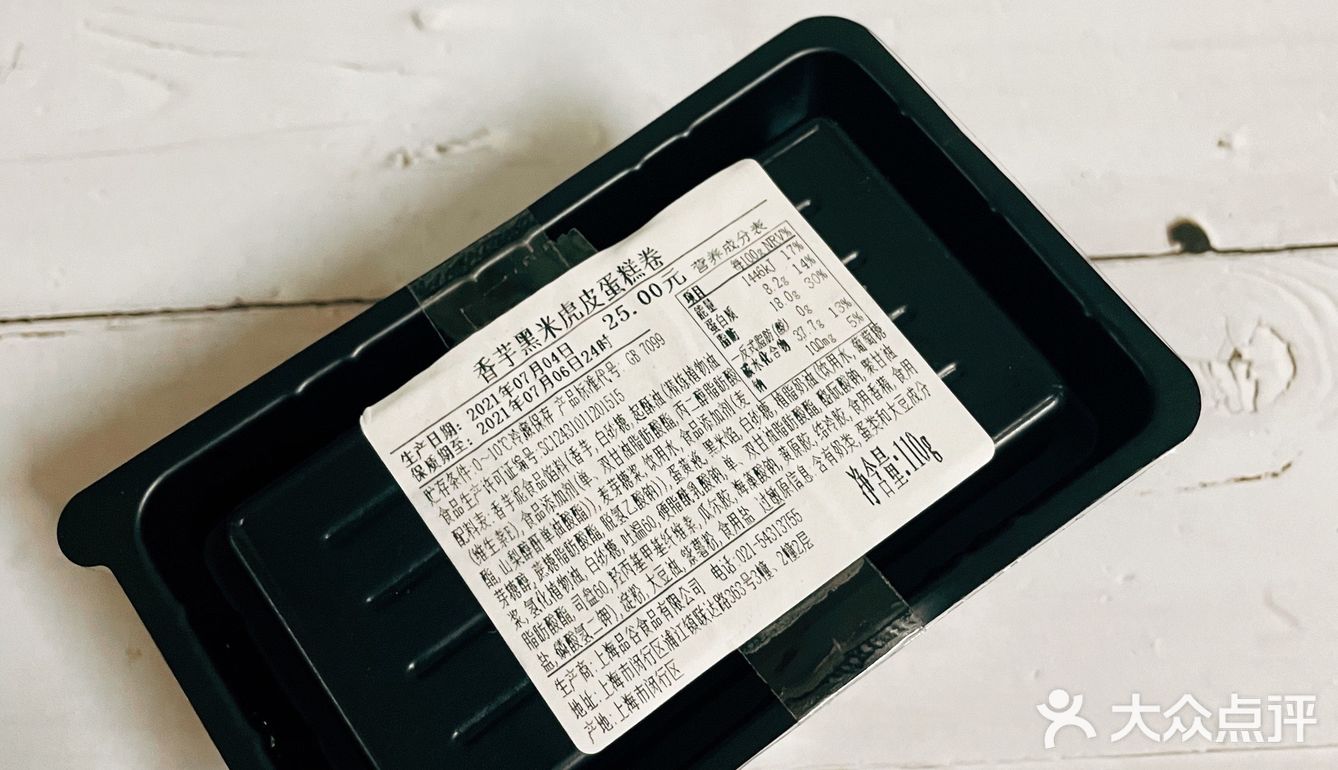 香芋黑米虎皮蛋糕卷
25.00元
生产日期: 2021年07月04日
保质期至: 2021年07月06日24时
贮存条件:0~10℃冷藏保存 产品标准代号: GB 7099
食品生产许可证编号:SC12431011201515
配料表:香芋泥食品馅料(香芋, 白砂糖, 起酥油(精炼植物油
(维生素E), 食品添加剂(单, 双甘油脂肪酸酯, 丙二醇脂肪酸
酯, 山梨醇酐单油酸酯)), 麦芽糖浆, 饮用水, 食品添加剂(麦
芽糖醇, 蔗糖脂肪酸酯, 脱氢乙酸钠)), 蛋浆液, 黑米馅, 白砂糖, 植脂奶油(饮用水, 葡萄糖
浆, 氢化植物油, 白砂糖, 吐温60, 硬脂酰乳酸钠, 单, 双甘油脂肪酸酯, 酪朊酸钠, 聚甘油
脂肪酸酯, 司盘60, 羟丙基甲基纤维素, 瓜尔胶, 海藻酸钠, 黄原胶, 结冷胶, 食用香精, 食用
盐, 磷酸氢二钾), 淀粉, 大豆油, 紫薯粉, 食用盐 过敏原信息:含有奶类, 蛋类和大豆成分
生产商:上海品谷食品有限公司 电话:021-54313755
地址:上海市闵行区浦江镇联达路363号3幢、2幢2层
产地:上海市闵行区
营养成分表
项目 每100g NRV%
能量 1446kJ 17%
蛋白质 8.2g 14%
脂肪 18.0g 30%
-反式脂肪(酸) 0g
碳水化合物 37.7g 13%
钠 100mg 5%
净含量:110g
大众点评